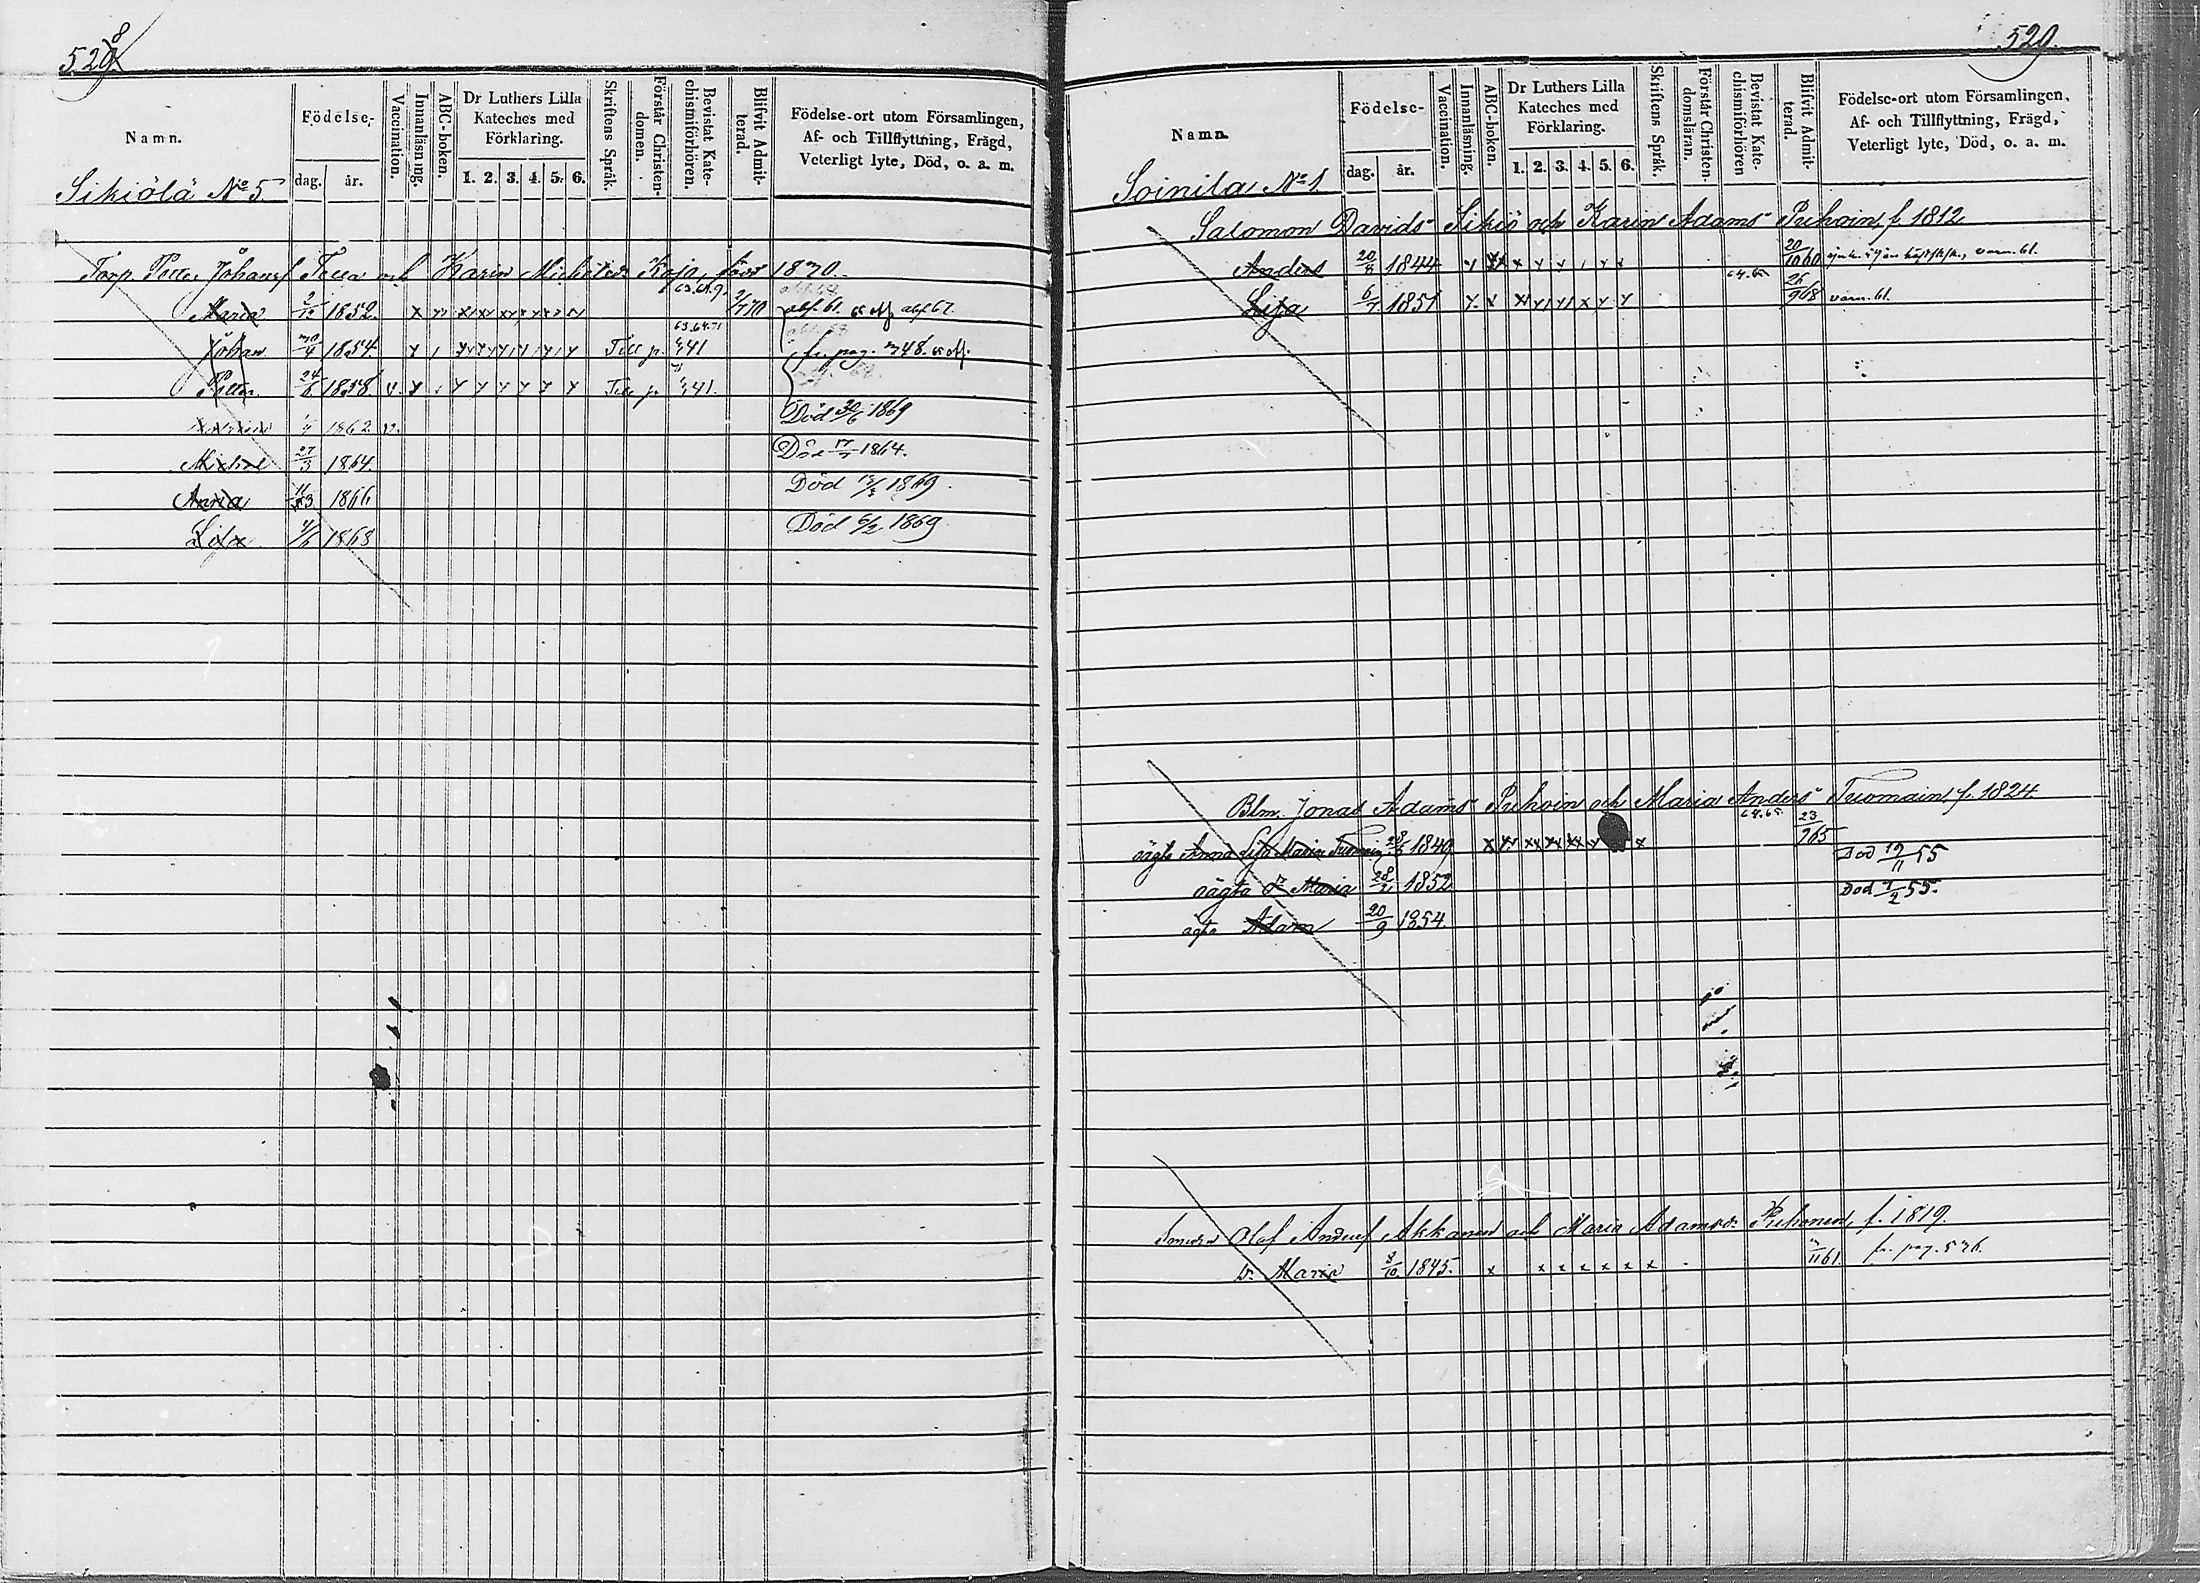 528
Namn.
Födelse-
dag.
år.
Vaccination.
Innanläsning.
ABC-boken.
Dr Luthers Lilla
Kateches med
Förklaring.
1. 2. 3. 4. 5. 6.
Skriftens Språk.
Förstår Christen-
domen.
Bevistat Kate-
chismiförhören.
Blifvit Admit-
terad.
Födelse-ort utom Församlingen,
Af- och Tillflyttning, Frägd,
Veterligt lyte, Död, o. a. m.
Sikiölä No 5
Torp. Petter Johansf och Karin Michelsd:r född 1830.
Maria 2/12 1852 abf. 61. abf 67.
Johan 1854 Till p. 341 fr. pag. 348.
Petter 24/6 1858. v. Till p. 341.
1862 v. Död 30/6 1869
Michel 27/3 1864 Död 1864.
Anna 1866 Död 1869.
Lisa 4/6 1868 Död 6/2 1869
529.
Namn.
Födelse-
dag.
år.
Vaccination.
Innanläsning.
ABC-boken.
Dr Luthers Lilla
Kateches med
Förklaring.
1. 2. 3. 4. 5. 6.
Skriftens Språk.
Förstår Christen-
domsläran.
Bevistat Kate-
chismiförhören
Blifvit Admit-
terad.
Födelse-ort utom Församlingen,
Af- och Tillflyttning, Frägd,
Veterligt lyte, Död, o. a. m.
Soinila No 1.
Salomon Davids Sikiö och Karin Adams Puhoin, f. 1812
Anders 20/8 1844 20/10 60
Lisa 6/7 1851 26/9 68 varn. 61.
Blm. Jonas Adams Puhoin och Maria Anders Tuomain, f. 1824.
oägta Anna Lisa Maria Tuomain 1849 23/9 65 Död 19/11 55
oägta d. Maria 28/2 1852 Död 7/2 55.
ägta Adam 20/9 1854.
Olof Andersf Akkanen och Maria Adamsd:r Puhonen, f. 1819.
D. Maria 8/10 1845. 11 61. fr. pag. 536.